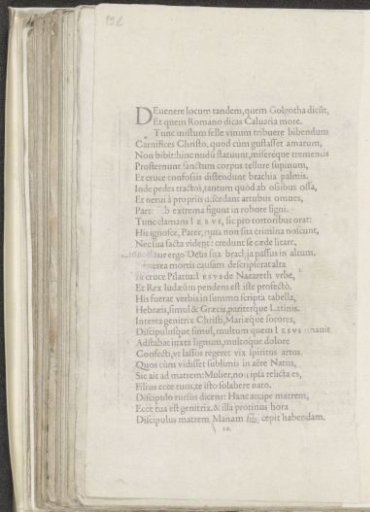 192
DEuenere locum tandem, quem Golgotha dicit,
Et quem Romano dicas Caluaria more.
Tunc mistum felle vinum tribuere bibendum
Carnifices Christo, quod cùm gustasset amarum,
Non bibit: hinc nudũ statuunt, miseréque trementis
Prosternunt sanctum corpus tellure supinum,
Et cruce confossis distendunt brachia palmis.
Inde pedes tractos, tantum quod ab ossibus ossa,
Et nerui à propriis discedant artubus omnes,
extrema figunt in robore ligni.
Tunc clamans IESVS, sic pro tortoribus orat:
His ignosce, Pater, quia non sua crimina noscunt,
Nec sua facta vident: credunt se cæde litare,
ergo Deus sua brachia passus in altum.
mortis causam descripserat alta
In cruce Pilatus: IESVS de Nazareth vrbe,
Et Rex Iudæûm pendens est iste profectò.
His fuerat verbis in summo scripta tabella,
Hebræis, simul & Græcis, pariterque Latinis.
Interea genitrix Christi, Mariæque sorores,
Discipulusque simul, multum quem IESVS amauit
Adstabat iuxta lignum, multoque dolore
Confecti, vt lassos regeret vix spiritus artus.
Quos cùm vidisset sublimis in aëre Natus,
Sic ait ad matrem: Mulier, non ipsa relicta es,
Filius ecce tuus, te isto solabere nato.
Discipulo rursus dicens: Hanc accipe matrem,
Ecce tua est genitrix. & illa protinus hora
Discipulus matrem Mariam sibi cepit habendam.